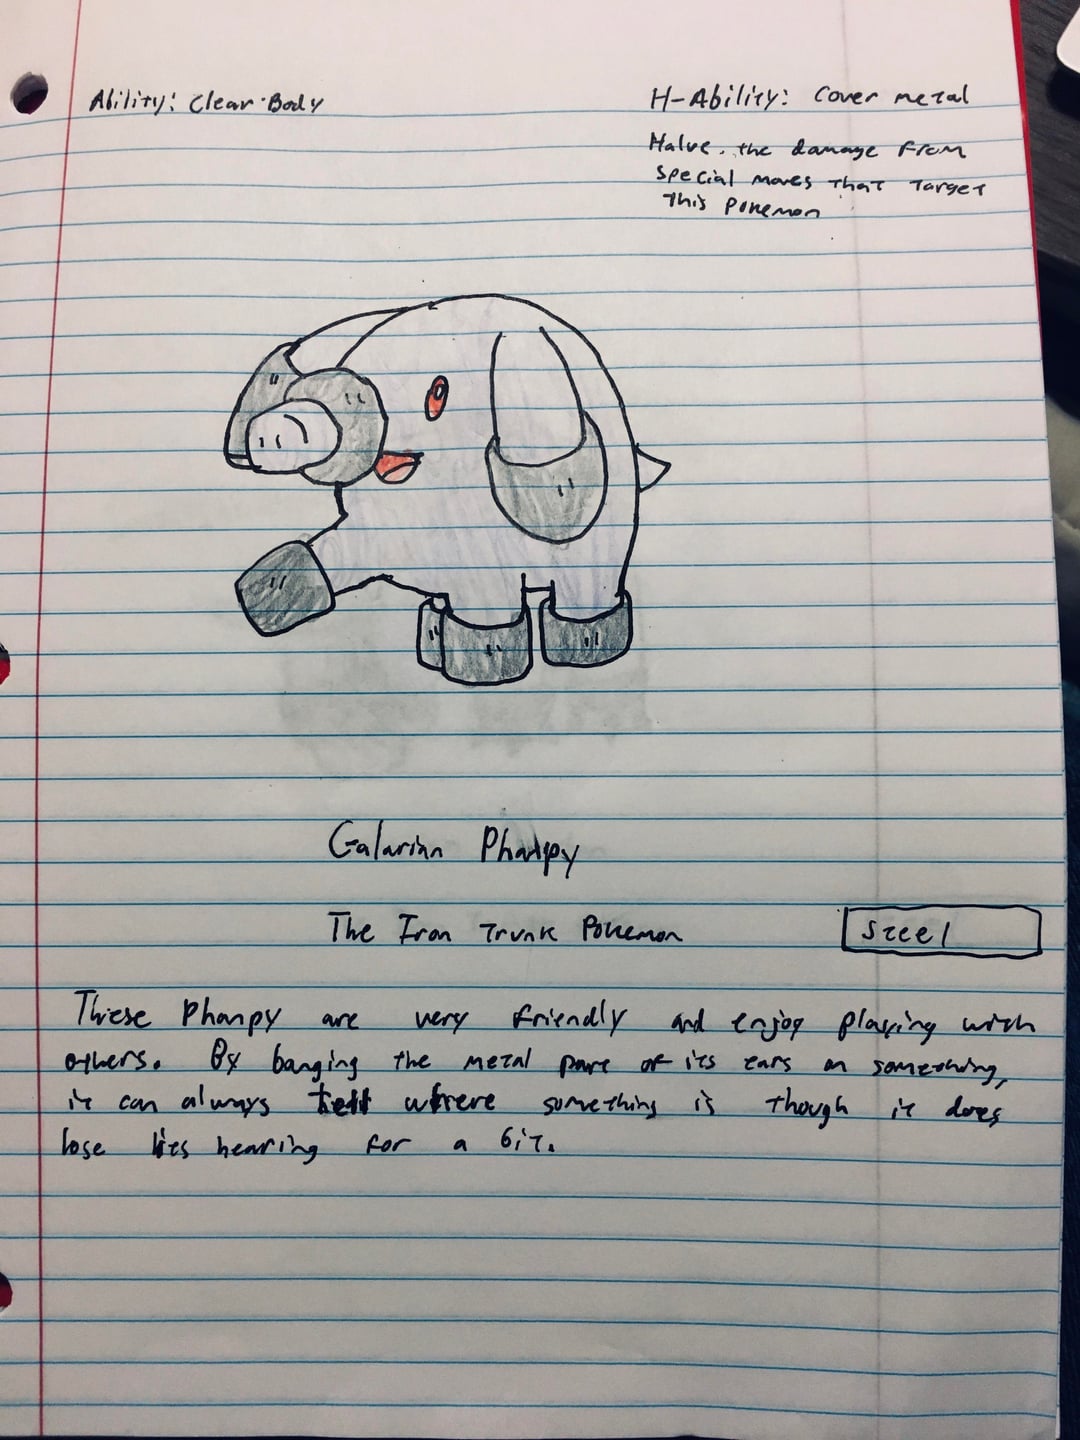 Ability: Clear Body
H-Ability: Cover metal
Halve the damage from
special moves that target
this Pokemon
Galarian Phanpy
The Iron Trunk Pokemon
Steel
These Phanpy are very friendly and enjoy playing with
others. By banging the metal part of its ears on something,
it can always tell where something is though it does
lose its hearing for a bit.